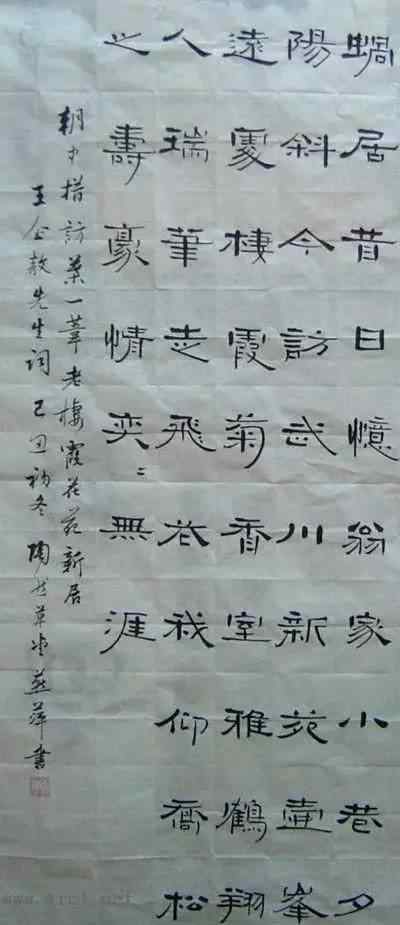 蝸居昔日憶翁家小巷夕
陽斜今訪武川新苑壺峯
遠處棲霞菊香室雅鶴翔
人瑞筆走飛花我仰喬松
之壽豪情奕〻無涯
朝中措訪葉一葦老棲霞花苑新居
王企敖先生詞己丑初冬陶然草堂燕萍書